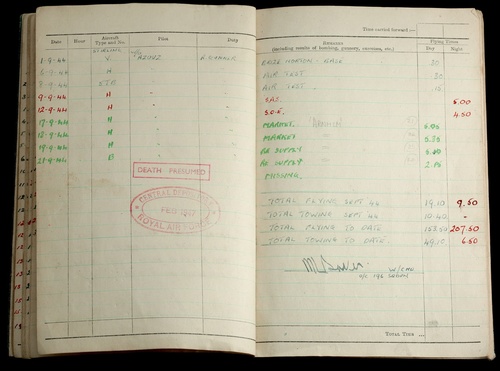 Time carried forward :—
Date Hour Aircraft Type and No. Pilot Duty Remarks (including results of bombing, gunnery, exercises, etc.) Flying Times Day Night
STIRLING
1-9-44 V. A. GUNNER BASE 30
6-9-44 H " " AIR TEST 30
8-9-44 " " AIR TEST 15
9-9-44 H " " SAS. 5.00
12-9-44 H " " S.O.E. 4.50
17-9-44 H " " MARKET.
18-9-44 H " " MARKET "
19-9-44 H " " RE SUPPLY "
21-9-44 " " RE SUPPLY.
MISSING.
DEATH PRESUMED
CENTRAL DEPOSITORY
FEB 1947
ROYAL AIR FORCE
TOTAL FLYING SEPT 44 19.10 9.50
TOTAL TOWING SEPT 44 —
TOTAL FLYING TO DATE 207.50
TOTAL TOWING TO DATE. 49.10 6.50
W/CDR.
O/C 196 SQDN
TOTAL TIME ...